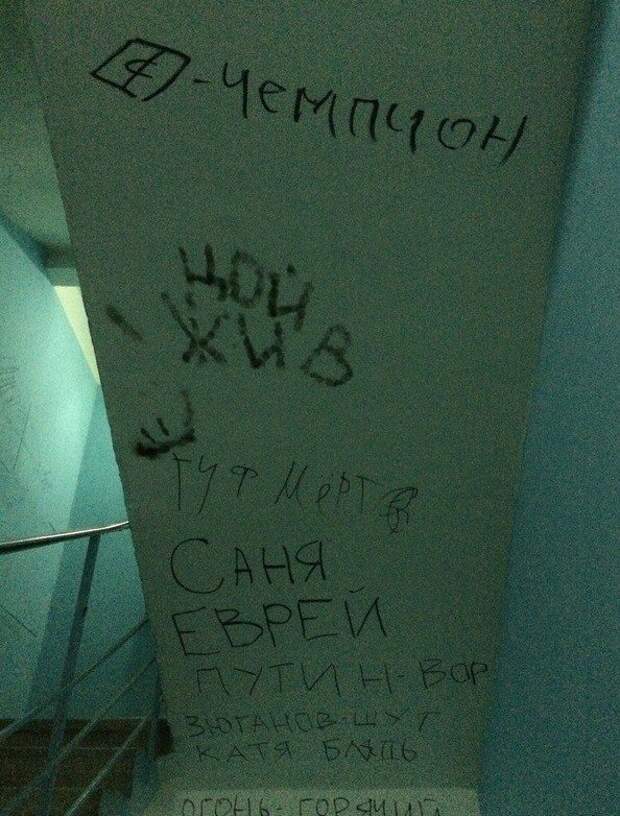 -ЧЕМПИОН
ЦОЙ
ЖИВ
ГУФ МЁРТВ
САНЯ
ЕВРЕЙ
ПУТИН-ВОР
ЗЮГАНОВ-ШУТ
КАТЯ БЛЯДЬ
ОГОНЬ-ГОРЯЧИЙ